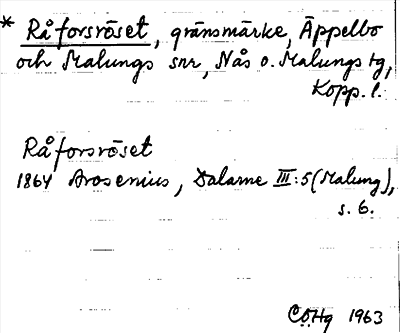 * Råforsröset, gränsmärke, Äppelbo
och Malungs snr, Nås o. Malungs tg,
Kopp. l.
Råforsröset
1864 Arosenius, Dalarne III:5 (Malung),
s. 6.
CÖHg 1963